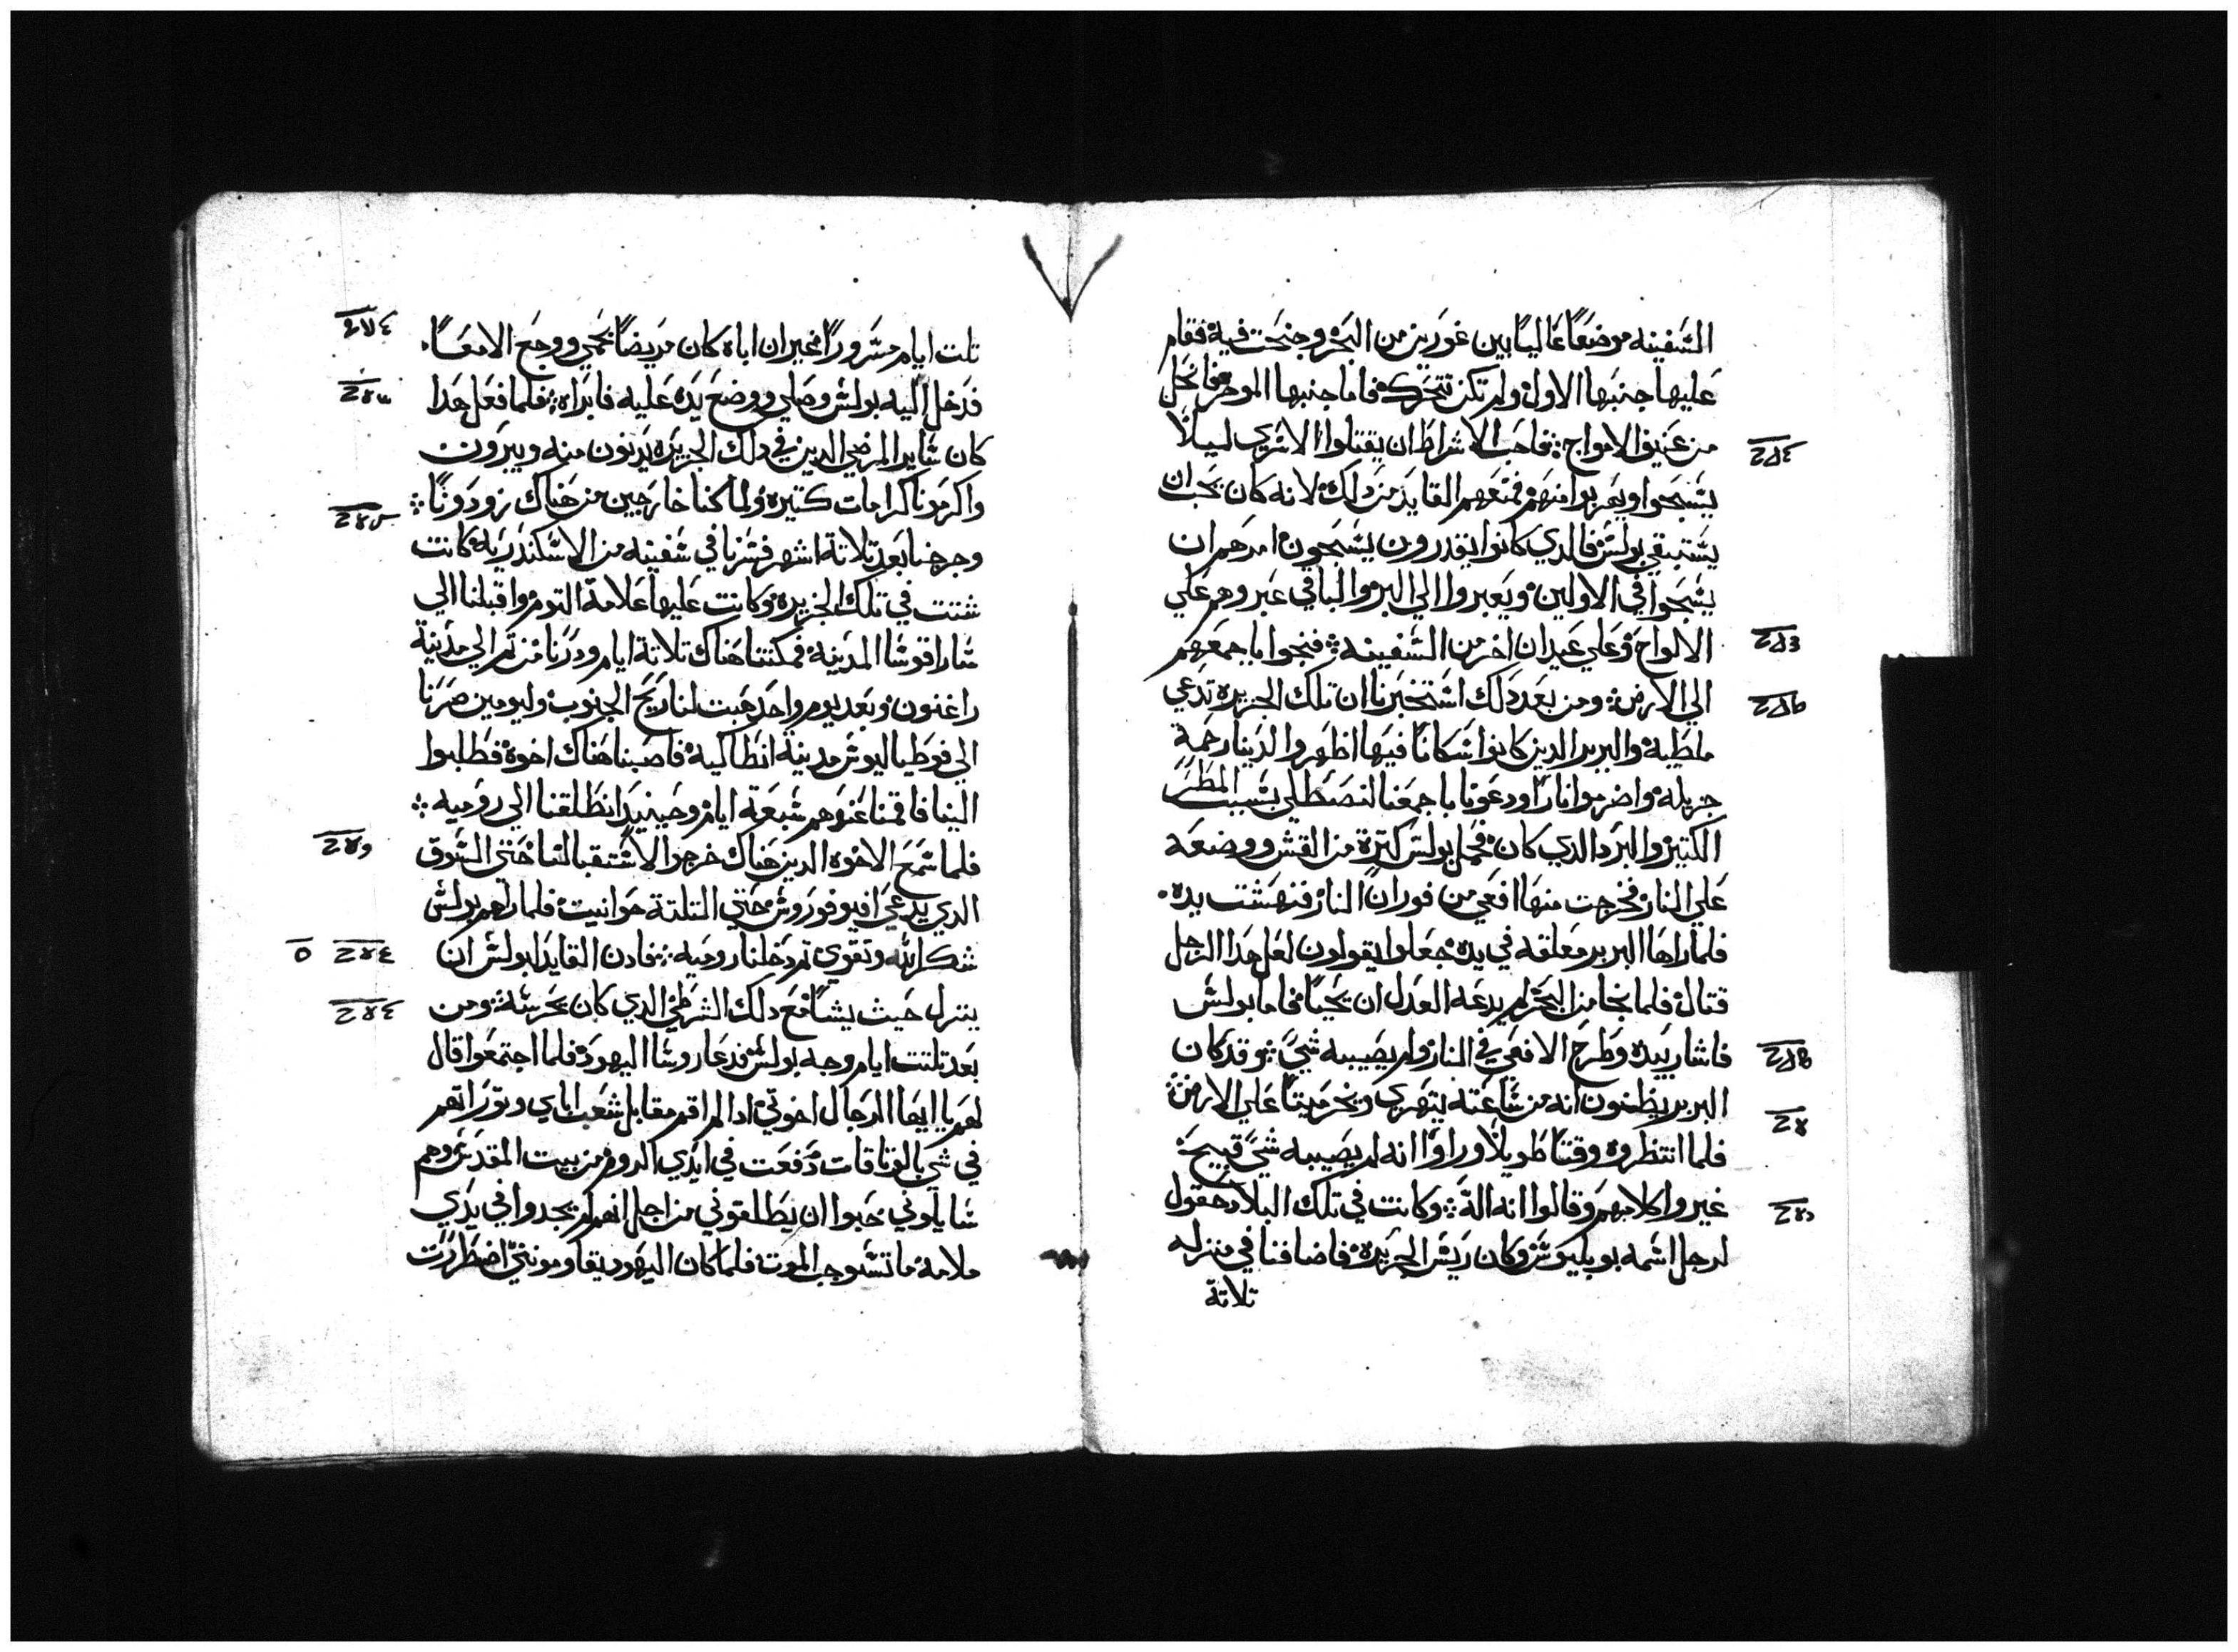 السفينه موضعًا عاليًا بين غورين من البحر وجنحت فيه فقام
عليها جنبها الاول ولم تكن تتحرك فاما جنبها الموخر فانحل
من عنيف الامواج ؛ فاحب الاشراط ان يقتلوا الاسري ليلا
يسبحوا ويهربوا منهم فمنعهم القايد من دلك لانه كان يحب ان
يستبقي بولس فالدي كانوا يقدرون يسبحون امرهم ان
يسبحوا في الاولين ويعبروا الي البر والباقي عبروهم علي
الالواح وعلي عيدان اخر من السفينه ؛ فنجوا باجمعهم
الي الارض ؛ ومن بعد دلك استخبرنا ان تلك الجزيره تدعي
ملطيه والبربر الدين كانوا سكانًا فيها اظهروا لدينا رحمة
جزيله واضرموا نارًا ودعونا باجمعنا لنصطلي بسبب المطر
الكتير والبرد الدي كان فحمل بولس كترة من القش ووضعه
علي النار فخرجت منها افعي من فوران النار فنهشت يده
فلما راها البربر معلقه في يده جعلوا يقولون لعل هدا الرجل
قتال فلما نجا من البحر لم يدعه العدل ان يحيا فاما بولس
فاشار بيده وطرح الافعي في النار ولم يصيبه شي ؛ وقد كان
البربر يظنون انه من ساعته يتهري ويخر ميتًا علي الارض ؛
فلما انتظروه وقتًا طويلًا وراوا انه لم يصيبه شي قبيح
غيروا كلامهم وقالوا انه اله ؛ وكانت في تلك البلاد حقول
لرجل اسمه بوبليوس وكان ريس الجزيره فاضافنا في منزله
تلاتة
تلت ايام مسرورًا فخبر ان اباه كان مريضًا بحمي ووجع الامعا
فدخل اليه بولس وصلي ووضع يده عليه فابراه ؛ فلما فعل هدا
كان ساير المرضي الدين في دلك الجزيره يدنون منه ويبرون
واكرمونا كرامات كتيره ولما كنا خارجين من هناك زودونا ؛
وخرجنا بعد تلاتة اشهر فسرنا في سفينه من الاسكندريه كانت
شتت في تلك الجزيره وكانت عليها علامة التوم واقبلنا الي
ساراقوسا المدينه فمكتنا هناك تلاتة ايام ودرنا من تم الي مدينة
راغنون وبعد يوم واحد هبت لنا ريح الجنوب وليومين صرنا
الي فوطياليوس مدينة انطاكيه فاصبنا هناك اخوة فطلبوا
الينا فاقمنا عندهم سبعة ايام وحينيد انطلقنا الي روميه ؛
فلما سمع الاخوه الدين هناك خرجوا لاستقبالنا حتي السوق
الدي يدعي افيوفوروس حتي التلتة حوانيت فلما راهم بولس
شكر الله وتقوي تم دخلنا روميه ؛ فادن القايد لبولس ان
ينزل حيث يشا مع دلك الشرطي الدي كان يحرسه ؛ ومن
بعد تلتت ايام وجه بولس فدعا روسا اليهود فلما اجتمعوا قال
لهم يا ايها الرجال اخوتي ادا لم اقم مقابل شعب اباي وتوراتهم
في شي بالوتاقات دفعت في ايدي الروم من بيت المقدس وهم
سايلوني حبوا ان يطلقوني من اجل انهم لم يجدوا في يدي
ملامة ما تستوجب الموت فلما كان اليهود يقاومونني اضطررت